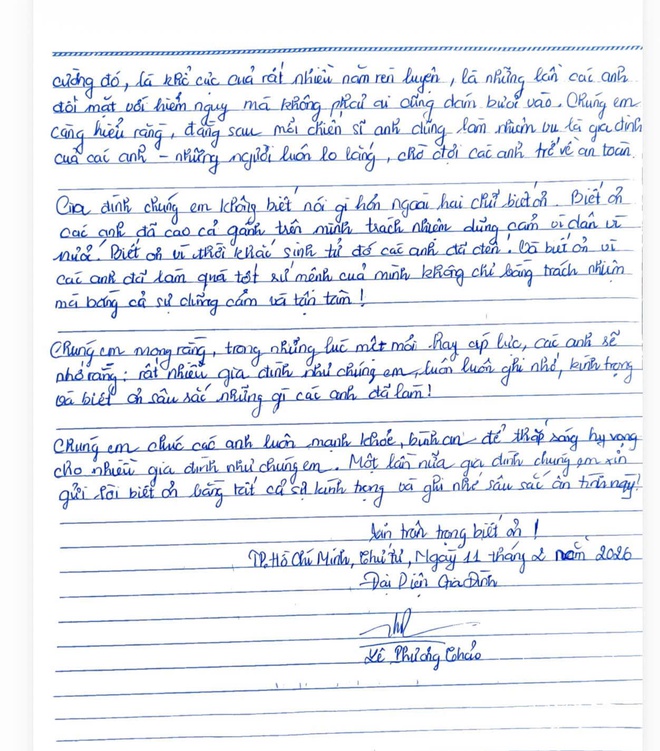 cường đó, là khổ cực của rất nhiều năm rèn luyện, là những lần các anh
đối mặt với hiểm nguy mà không phải ai cũng dám bước vào. Chúng em
càng hiểu rằng, đằng sau mỗi chiến sĩ anh dũng làm nhiệm vụ là gia đình
của các anh - những người luôn lo lắng, chờ đợi các anh trở về an toàn
Gia đình chúng em không biết nói gì hơn ngoài hai chữ biết ơn. Biết ơn
các anh đã cao cả gánh trên mình trách nhiệm dũng cảm vì dân vì
nước. Biết ơn vì thời khắc sinh tử đó các anh đã đến! Và biết ơn vì
các anh đã làm quá tốt sứ mệnh của mình không chỉ bằng trách nhiệm
mà bằng cả sự dũng cảm và tận tâm!
Chúng em mong rằng, trong những lúc mệt mỏi hay áp lực, các anh sẽ
nhớ rằng: rất nhiều gia đình như chúng em, luôn luôn ghi nhớ, kính trọng
và biết ơn sâu sắc những gì các anh đã làm!
Chúng em chúc các anh luôn mạnh khỏe, bình an để thắp sáng hy vọng
cho nhiều gia đình như chúng em. Một lần nữa gia đình chúng em xin
gửi lời biết ơn bằng tất cả sự kính trọng và ghi nhớ sâu sắc ân tình này!
Xin trân trọng biết ơn!
TP. Hồ Chí Minh, Thứ tư, Ngày 11 tháng 2 năm 2026
Đại Diện Gia Đình
Lê Phương Thảo